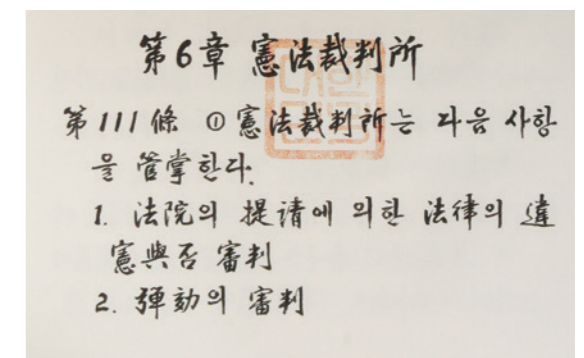 第6章 憲法裁判所
第111條 ① 憲法裁判所는 다음 사항
을 管掌한다.
1. 法院의 提請에 의한 法律의 違
憲與否 審判
2. 彈劾의 審判